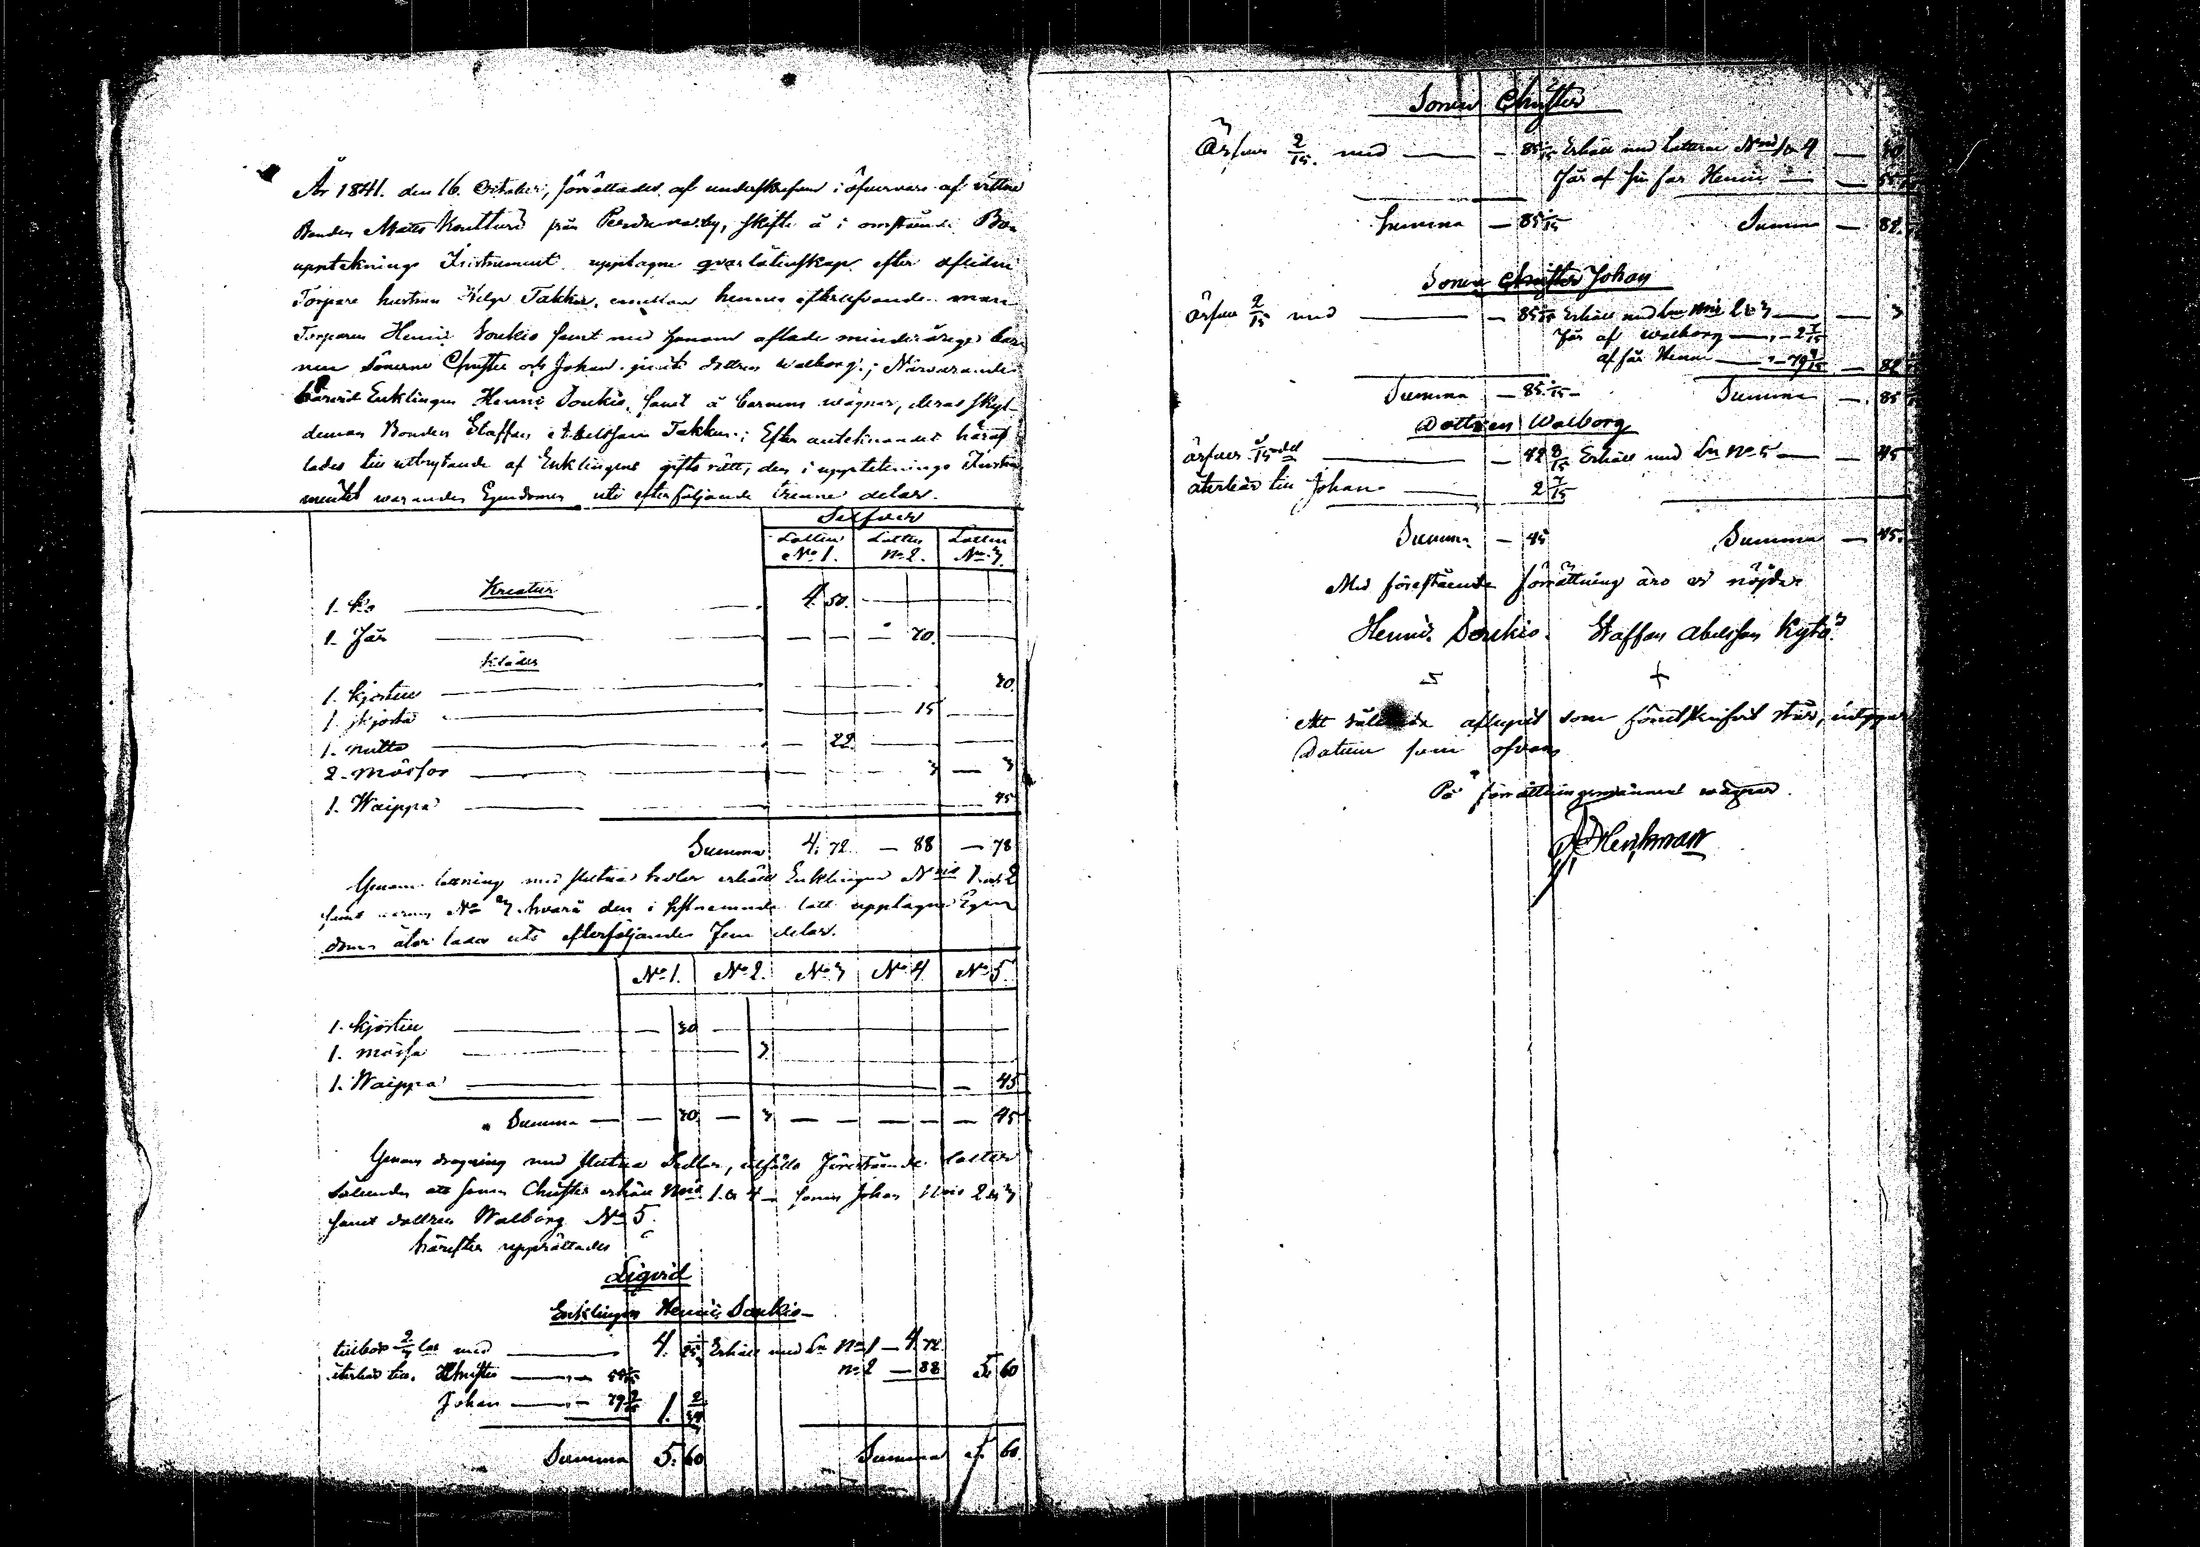 År 1841. den 16. October, förrättades af underskrefven i öfvervaro af vittne
Bonden Matts från by, skifte å i omstående Bo
uppteknings Instrument upptagne qvarlåtenskap efter aflidne
Torpare hustrun Helga Takku, emellan hennes efterlefvande man
Torparen Henric Soukio samt med honom aflade minderårige bar
nen Sönerne Christer och Johan jemte dottren Walborg; Närvarande
härvid Enklingen Henric Soukio, samt å barnens wägnar, deras
Bonden Staffan Abelsson Takku; Efter häraf
lades till utbrytande af Enklingens giftorätt, den i upptecknings Instru
mentet warande Egendomen uti efterföljande trenne delar.
Silfver
Lotten No 1. Lotten No 2. Lotten No 3.
Kreatur
1. Ko — 4. 50.
1. Får — 70.
Kläder
1. kjortel — 30
1. skjorta — 15
1. nutto — 22
2. mössor — 3 — 3
1. Waippa — 45
Summa 4. 72. — 88 — 78
Genom lottning med slutna erhöll Enklingen Nris 1. och 2
samt No 3. hvarå den i sistnemnde lott upptagne Egen
dom åter lades uti efterföljande Fem delar.
No 1. No 2. No 3 No 4 No 5.
1. kjortel — 30
1. mössa — 3
1. Waippa — 45
Summa — 30 — 3 — — — 45
Genom dragning med slutna Sedlar, utföllo förestående lotter
sålunda att sonen Christer erhöll Nris 1. & 4 — sonen Johan Nris 2 & 3
samt dottren Walborg No 5.
härefter upprättades
Liqvid
Enklingen Henric Soukio
tillkom 2/3 med — 4. Erhåll med Ln No 1 — 4. 72.
återbär till Christer — No 2 — 88 5. 60
Johan — 79 1.
Summa 5. 60 Summa 5. 60
Sonen Christer
Ärfver 2/15 med — 85 Erhåll med lotterne Nris 1 & 4 — 30
får af sin far Henric —
Summa — 85 Summa —
Sonen Christer Johan
ärfver 2/15 med — 85 Erhåll med Ln Nris 2 & 3 — 3
får af Walborg — 2 7/15
af far Henric — 79
Summa — 85 Summa — 85
Dottren Walborg
ärfver 1/15 del — 42 8/15 Erhåll med Ln No 5 — 45
återbär till Johan — 2 7/15
Summa — 45 Summa — 45.
Med förestående förrättning äro vi nöjde
Henric Soukio. Staffan Abelsson Kytö
Att aflupit som förutskrifvit står, intygar
Datum som ofvan
På förrättningsmännens wägnar.